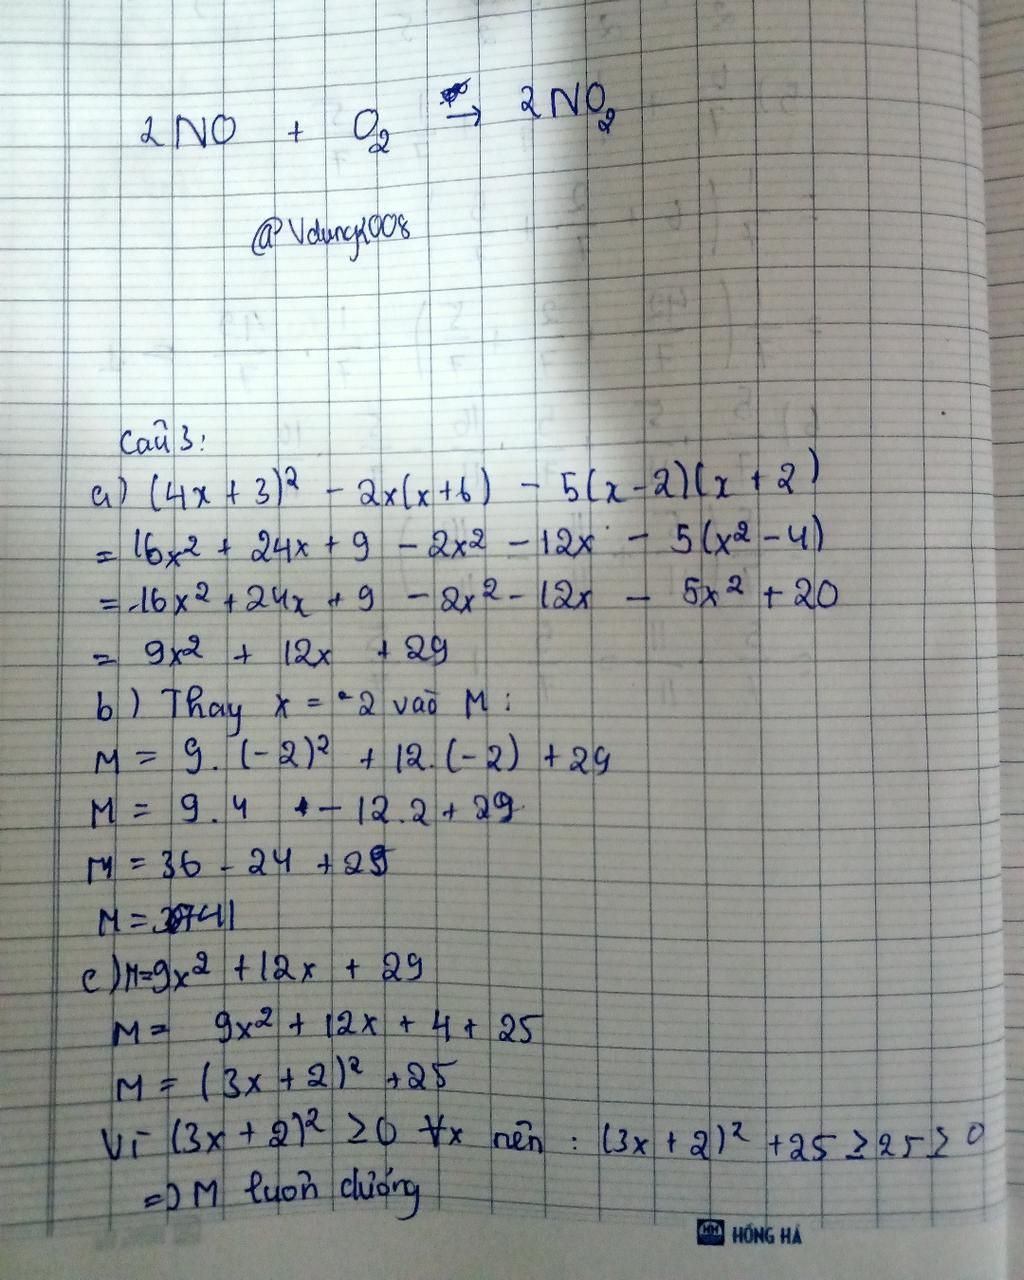 2NO + O₂ → 2NO₂
@Vdung2008
Câu 3:
a) (4x + 3)² - 2x(x+6) - 5(x-2)(x+2)
= 16x² + 24x + 9 - 2x² - 12x - 5(x² - 4)
= 16x² + 24x + 9 - 2x² - 12x - 5x² + 20
= 9x² + 12x + 29
b) Thay x = -2 vào M:
M = 9.(-2)² + 12.(-2) + 29
M = 9.4 - 12.2 + 29
M = 36 - 24 + 29
M = 41
c) M = 9x² + 12x + 29
M = 9x² + 12x + 4 + 25
M = (3x + 2)² + 25
Vì (3x + 2)² ≥ 0 ∀x nên: (3x + 2)² + 25 ≥ 25 ≥ 0
=> M luôn dương
HỒNG HÀ